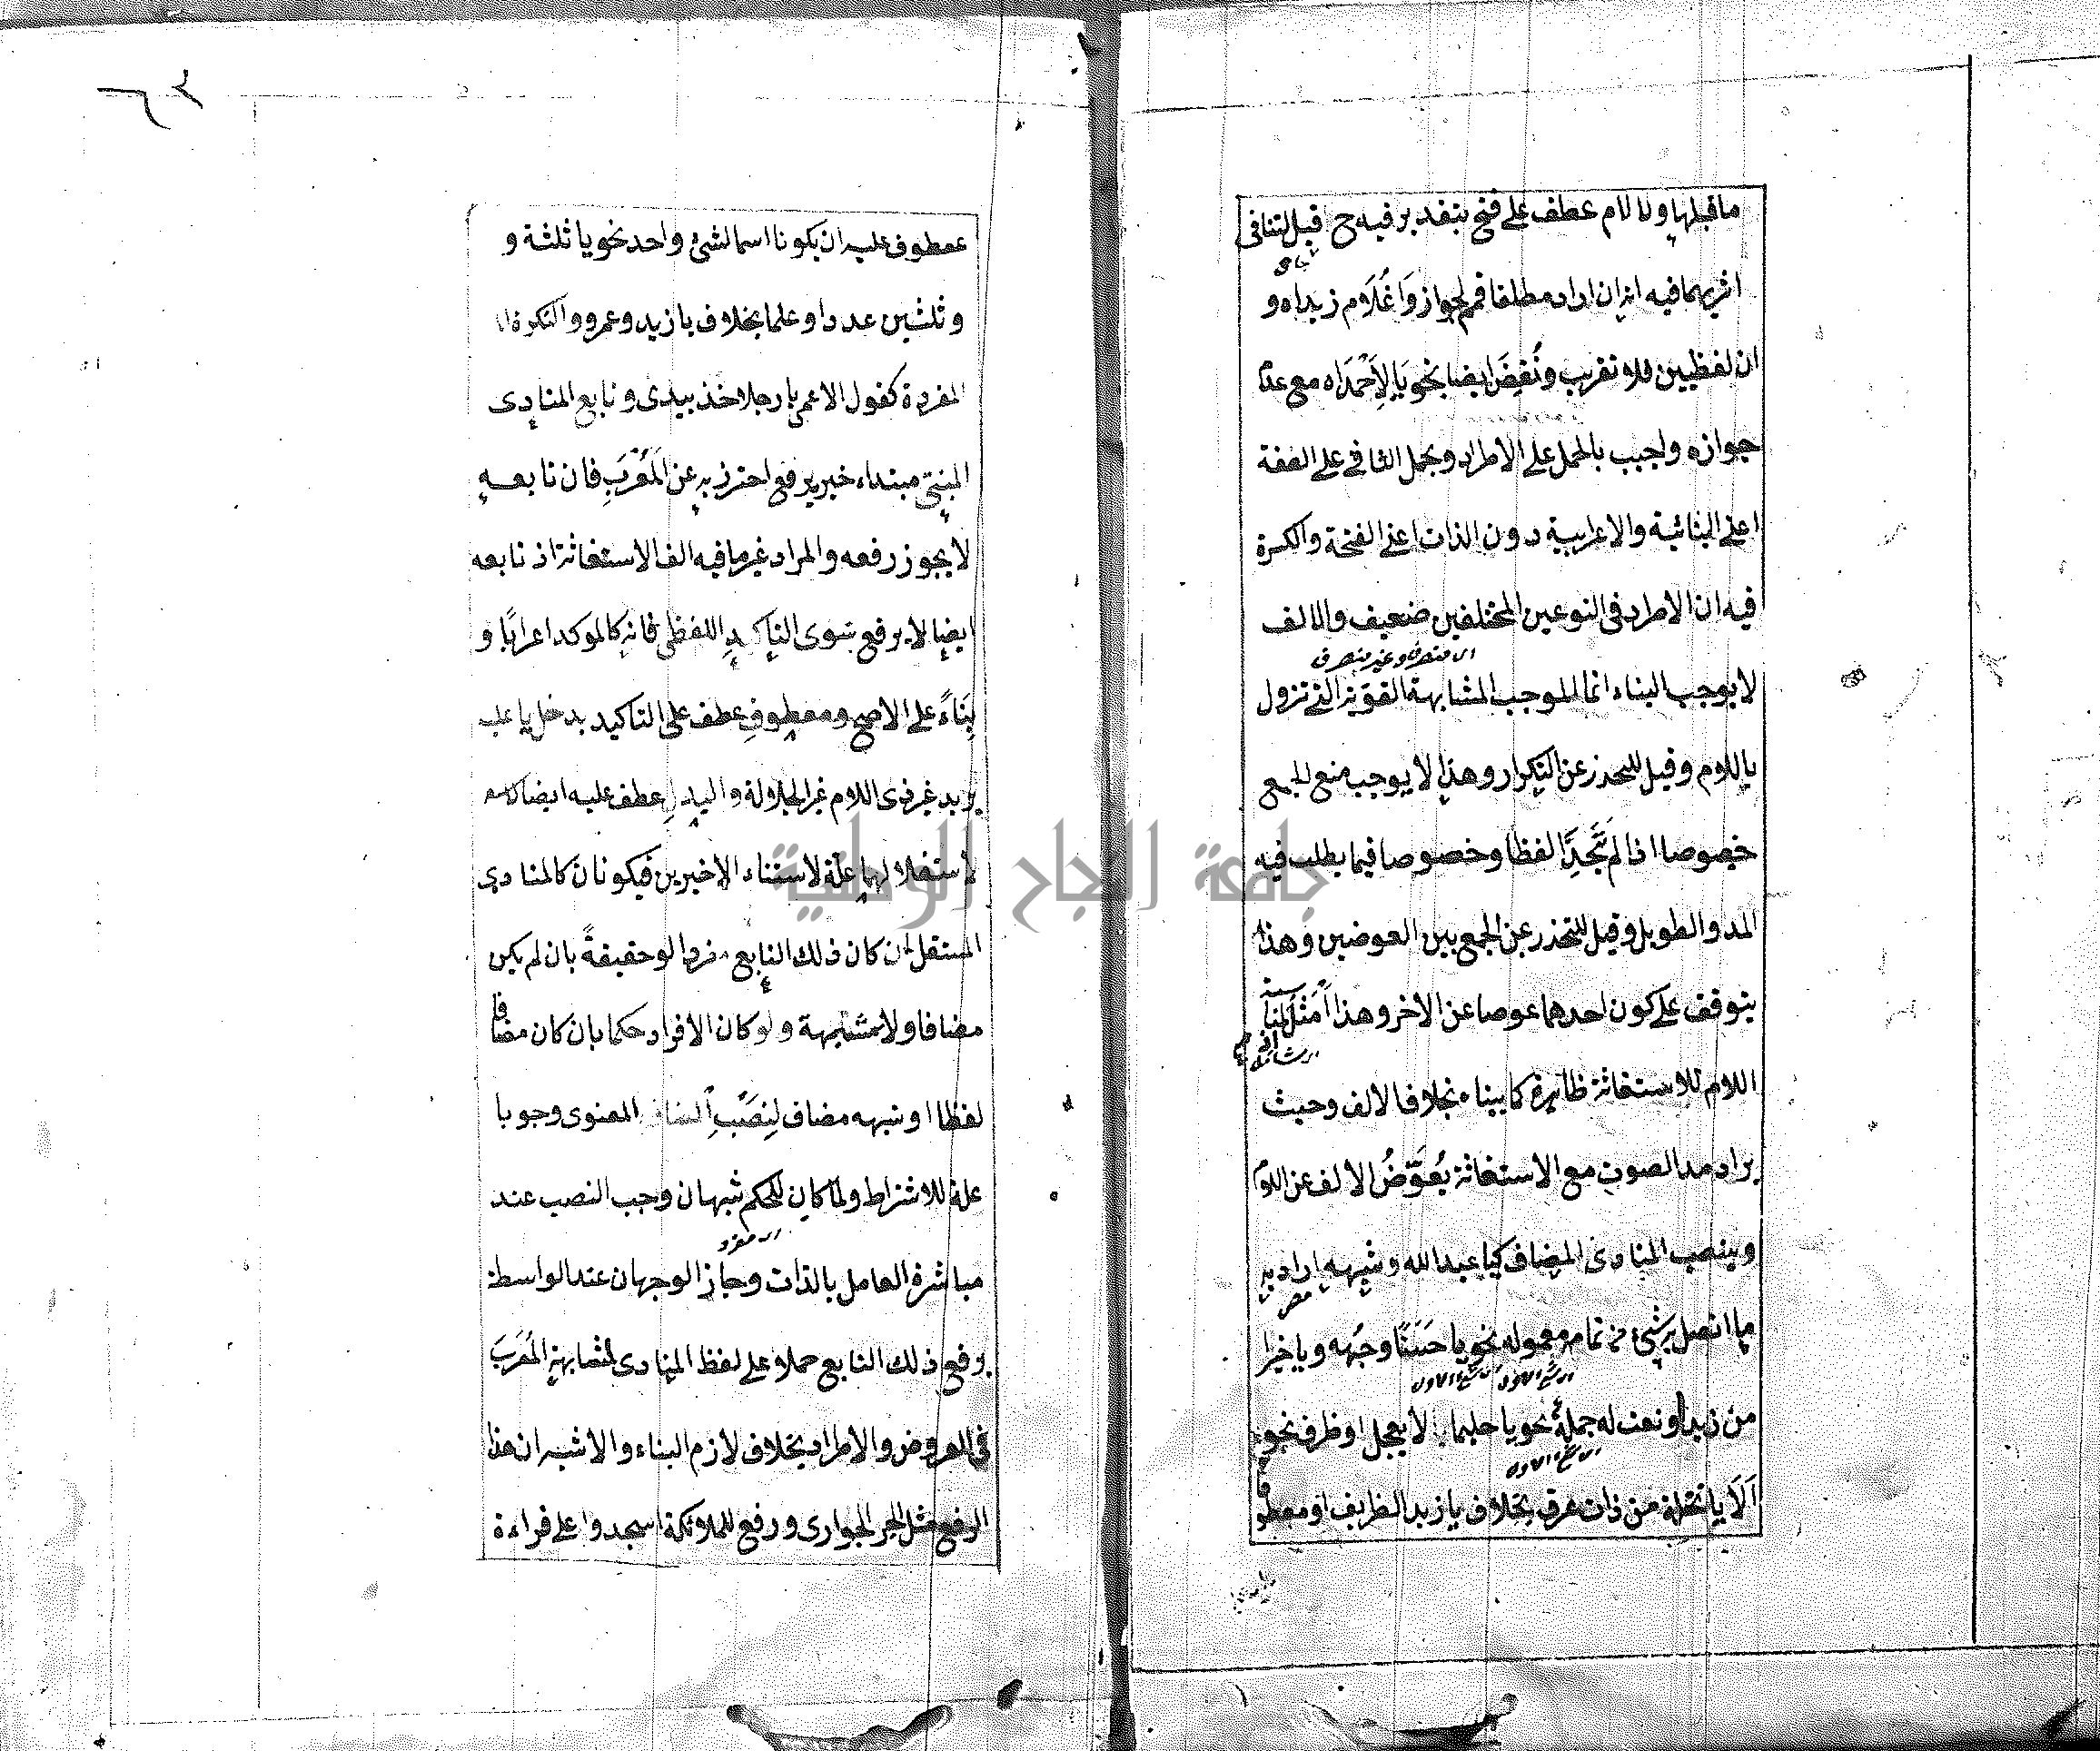 ما قبلها ولا لام عطف على فتح بتقدير فيه ح قيل لتنافى
اثريهما فيه انه ان اراد مطلقا فمم لجواز وَا غُلَام زيداه و
ان لفظيين فلا تقريب ونُقِضَ ايضا بنحو يَا لِأَحْمَدَاه مع عدم
جوازه واجيب بالحمل على الاطراد وبحمل التنافى على الصفة
اعنى البنائية والاعرابية دون الذات اعنى الفتحة والكسرة
فيه ان الاطراد فى النوعين المختلفين ضعيف والالف
اى منصرفا وغير منصرف
لا يوجب البناء انما الموجب المشابهة القوية التى تزول
باللام وقيل للتحذر عن التكرار وهذا لا يوجب منع الجمع
خصوصا اذا لم يَتَّحِدَا لفظا وخصوصا فيما يطلب فيه
المد والطويل وقيل للتحذر عن الجمع بين العوضين وهذا
يتوقف على كون احدهما عوضا عن الاخر وهذا أمثل
اللام للاستغاثة ظاهرة كا بخلاف الالف وحيث
يراد مد الصوت مع الاستغاثة يُعَوَّضُ الالف عن اللام
وينصب المنادى المضاف كيا عبد الله وشبهه اراد به
ما اتصل به شئ من تمام معموله نحو يا حَسَنًا وجهُه ويا خيرا
من زيد او نعت له جملة نحو يا حليما لا يعجل او ظرف نحو
أَلَا يا نخلة من ذات عرق بخلاف يا زيد الظريف او معطو
جامعة النجاح الوطنية
٦٢
معطوف عليه ان يكونا اسما لشئ واحد نحو يا ثلثة و
وثلثين عددا وعلما بخلاف يا زيد وعمرو والنكرة
المفردة كقول الاعمى يا رجلا خذ بيدى وتابع المنادى
المبنى مبتداء خبره يرفع احترز به عن المُعْرَبِ فان تابعه
لا يجوز رفعه والمراد غير ما فيه الف الاستغاثة اذ تابعه
ايضا لا يرفع سوى التاكيدِ اللفظى فانه كالموكد اعرابا و
بِنَاءً على الاصح ومعطوفٍ عطف على التاكيد بدخل يا عليه
يريد غير ذى اللام غير الجلالة والبدلِ عطف عليه ايضا
لاستقلالهما علة لاستثناء الاخيرين فيكونان كالمنادى
المستقل ان كان ذلك التابع مفردا لو حقيقةً بان لم يكن
مضافا ولا مشبهه ولو كان الافراد حكما بان كان مضافا
لفظا او شبهه مضاف لِنَصْبِ المضاف المعنوى وجوبا
علة للاشتراط ولما كان للحكم شبهان وجب النصب عند
اى مفرد
مباشرة العامل بالذات وجاز الوجهان عند الواسطة
يرفع ذلك التابع حملا على لفظ المنادى لمشابهته المُعْرَبَ
فى العروض والاطراد بخلاف لازم البناء والاشبه ان هذا
الرفع مثل الجر الجوارى ورفع للملائكة اسجدوا على قراءة